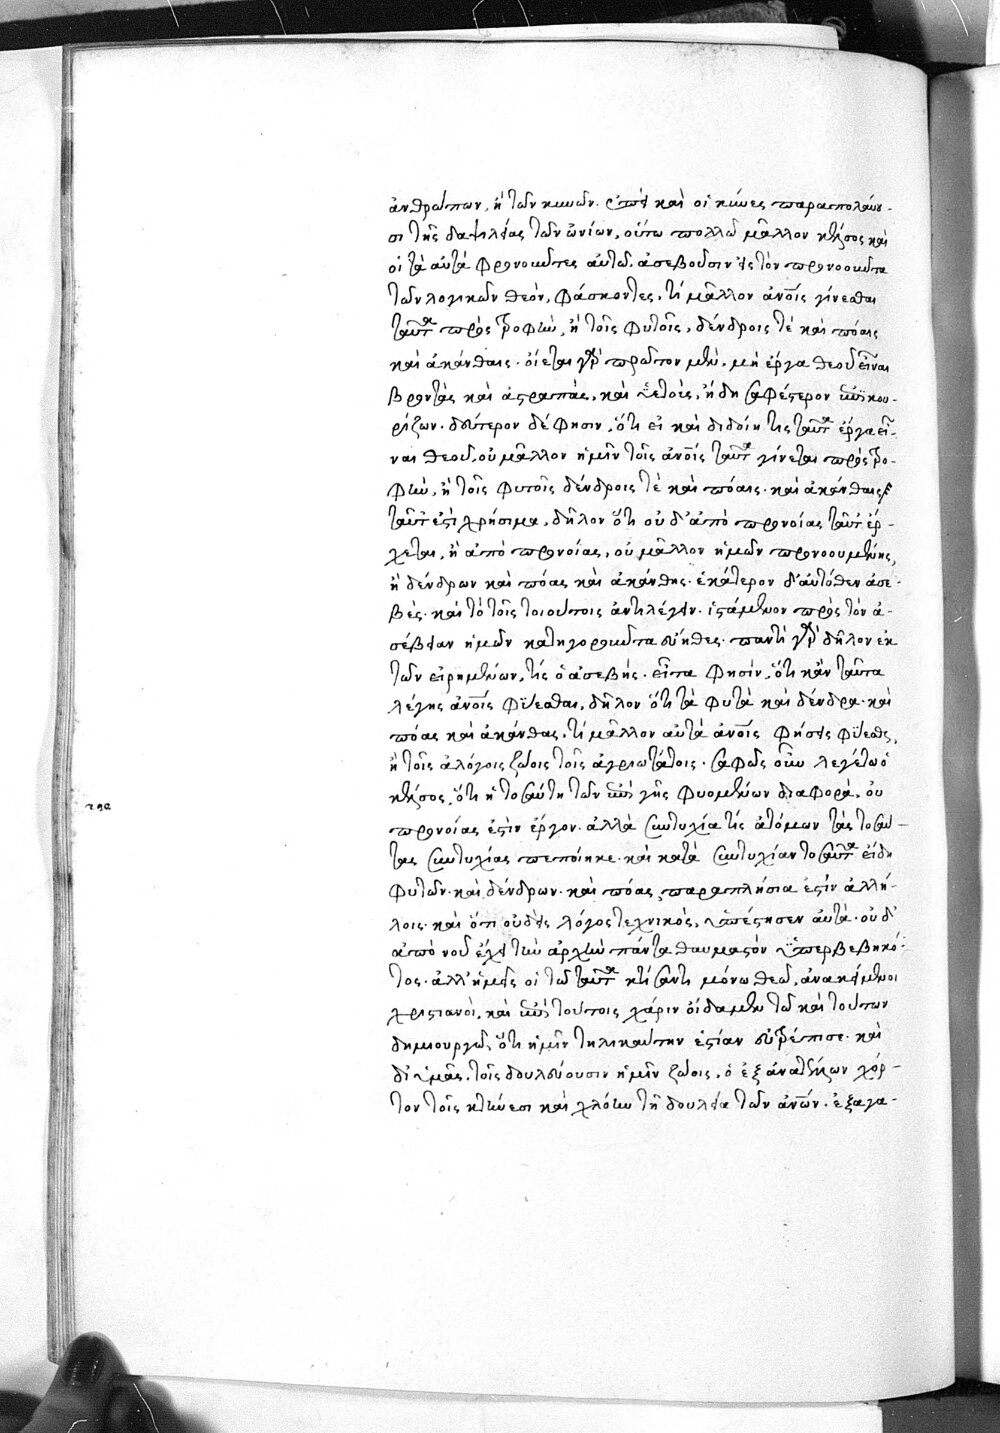 ἀνθρώπων, ἢ τῶν κυνῶν. ὥσπερ καὶ οἱ κύνες παραπολαύου-
σι τῆς δαψιλείας τῶν ὠνίων, οὕτω πολλῷ μᾶλλον κέλσος καὶ
οἱ τὰ αὐτὰ φρονοῦντες αὐτῷ ἀσεβοῦσιν εἰς τὸν προνοοῦντα
τῶν λογικῶν θεὸν, φάσκοντες, τί μᾶλλον ἀνοις γίνεσθαι
ταῦτα πρὸς τροφὴν, ἢ τοῖς φυτοῖς, δένδροις τὲ καὶ πόαις
καὶ ἀκάνθαις. οἴεται γὰρ πρῶτον μὲν, μὴ ἔργα θεοῦ εἶναι
βροντὰς καὶ ἀστραπὰς, καὶ ὑετοὺς, ἤδη σαφέστερον ἐπικου-
ρίζων. δεύτερον δέ φησιν, ὅτι εἰ καὶ διδοίη τις ταῦτα ἔργα εἶ-
ναι θεοῦ, οὐ μᾶλλον ἡμῖν τοῖς ἀνοις ταῦτα γίνεται πρὸς τρο-
φὴν, ἢ τοῖς φυτοῖς δένδροις τὲ καὶ πόαις. καὶ ἀκάνθαις
ταῦτ' ἐστὶ χρήσιμα, δῆλον ὅτι οὐδ' ἀπὸ προνοίας ταῦτ' ἔρ-
χεται, ἢ ἀπὸ προνοίας, οὐ μᾶλλον ἡμῶν προνοουμένης,
ἢ δένδρων καὶ πόας καὶ ἀκάνθης. ἑκάτερον δ' αὐτόθεν ἀσε-
βές. καὶ τὸ τοῖς τοιούτοις ἀντιλέγειν. ἱστάμενον πρὸς τὸν ἀ-
σέβειαν ἡμῶν κατηγοροῦντα εὔηθες. παντὶ γὰρ δῆλον ἐκ
τῶν εἰρημένων, τίς ὁ ἀσεβής. εἶτα φησὶν, ὅτι κἂν ταῦτα
λέγης ἀνοις φύεσθαι, δῆλον ὅτι τὰ φυτὰ καὶ δένδρα. καὶ
πόας καὶ ἀκάνθας, τί μᾶλλον αὐτὰ ἀνοις φήσεις φύεσθαι,
ἢ τοῖς ἀλόγοις ζώοις τοῖς ἀγριωτάτοις. σαφῶς οὖν λεγέτω ὁ
κέλσος, ὅτι ἡ τοσαύτη τῶν ἐπὶ γῆς φυομένων διαφορὰ, οὐ
προνοίας ἐστὶν ἔργον. ἀλλὰ συντυχία τίς ἀτόμων τὰς τοσαύ-
τας συντυχίας πεποίηκε. καὶ κατὰ συντυχίαν τοσαῦτα εἴδη
φυτῶν. καὶ δένδρων. καὶ πόας παραπλήσια ἐστὶν ἀλλή-
λοις. καὶ ὅτι οὐδεὶς λόγος τεχνικὸς, ὑπέστησεν αὐτά. οὐδ'
ἀπὸ νοῦ ἔχει τὴν ἀρχὴν πάντα θαυμασμὸν ὑπερβεβηκό-
τος. ἀλλ' ἡμεῖς οἱ τῷ ταῦτα κτίσαντι μόνῳ θεῷ, ἀνακείμενοι
χριστιανοὶ, καὶ ἐπὶ τούτοις χάριν οἴδαμεν τῷ καὶ τούτων
δημιουργῷ, ὅτι ἡμῖν τηλικαύτην ἑστίαν εὐτρέπισε. καὶ
δι' ἡμᾶς, τοῖς δουλεύουσιν ἡμῖν ζώοις, ὁ ἐξανατέλλων χόρ-
τον τοῖς κτήνεσι καὶ χλόην τῇ δουλείᾳ τῶν ἀνων. ἐξαγα-